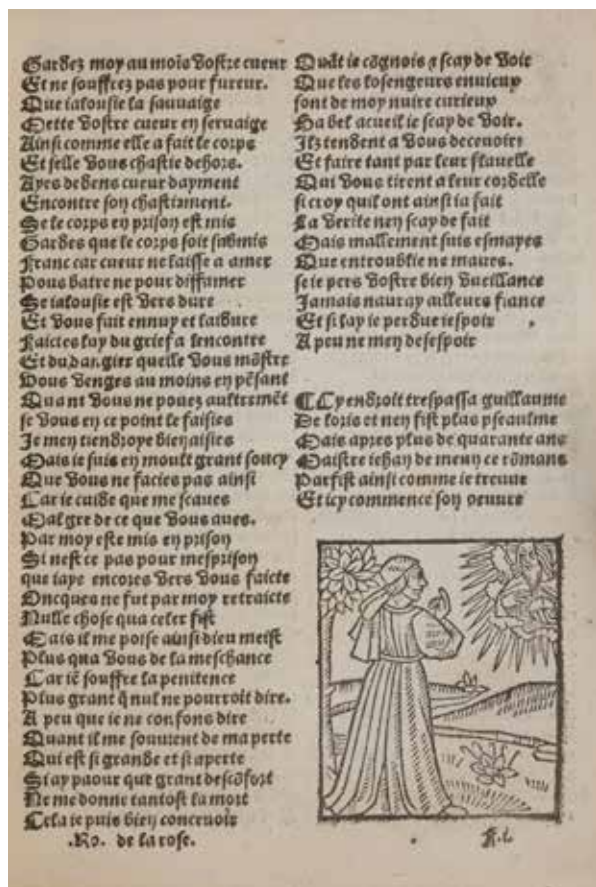 Gardez moy au mois vostre cueur
Et ne souffrez pas pour fureur.
Que ialousie la sauuaige
Mette vostre cueur en seruaige
Ainsi comme elle a fait le corps
Et selle vous chastie dehors.
Ayes dedens cueur dayment
Encontre son chastiment.
Se le corps en prison est mis
Gardes que le corps soit submis
Franc car cueur ne laisse a amer
Pous batre ne pour diffamer
Se ialousie est vers dure
Et vous fait ennuy et laidure
Faictes luy du grief a lencontre
Et du dangier quelle vous mõstre
Vous venges au moins en pẽsant
Quant vous ne pouez aultremẽt
se vous en ce point le faisies
Je men tiendroye bien aisies
Mais ie suis en moult grant soucy
Que vous ne facies pas ainsi
Car ie cuide que me scaues
Malgre de ce que vous aues.
Par moy este mis en prison
Si nest ce pas pour mesprison
que iaye encores vers vous faicte
Oncques ne fut par moy retraicte
Nulle chose qua celer fist
Mais il me poise ainsi dieu meist
Plus qua vous de la meschance
Car iẽ souffre la penitence
Plus grant q̃ nul ne pourroit dire.
A peu que ie ne confons dire
Quant il me souuient de ma perte
Qui est si grande et si aperte
Si ay paour que grant descõfort
Ne me donne tantost la mort
Cela ie puis bien conceuoir
.Ro. de la rose.
Quãt ie cõgnois et scay de voir
Que les losengeurs enuieux
sont de moy nuire curieux
Ha bel acueil ie scay de voir.
Ilz tendent a vous deceuoir
Et faire tant par leur flauelle
Qui vous tirent a leur cordelle
si croy quil ont ainsi ia fait
La verite nen scay de fait
Mais mallement suis esmayes
Que entroublie ne maues.
se ie pers vostre bien vueillance
Jamais nauray ailleurs fiance
Et si lay ie perdue iespoir
A peu ne men desespoir
Cy endroit trespassa guillaume
De loris et nen fist plus pseaulme
Mais apres plus de quarante ans
Maistre iehan de meun ce rõmans
Parfist ainsi comme ie treuue
Et icy commence son oeuure